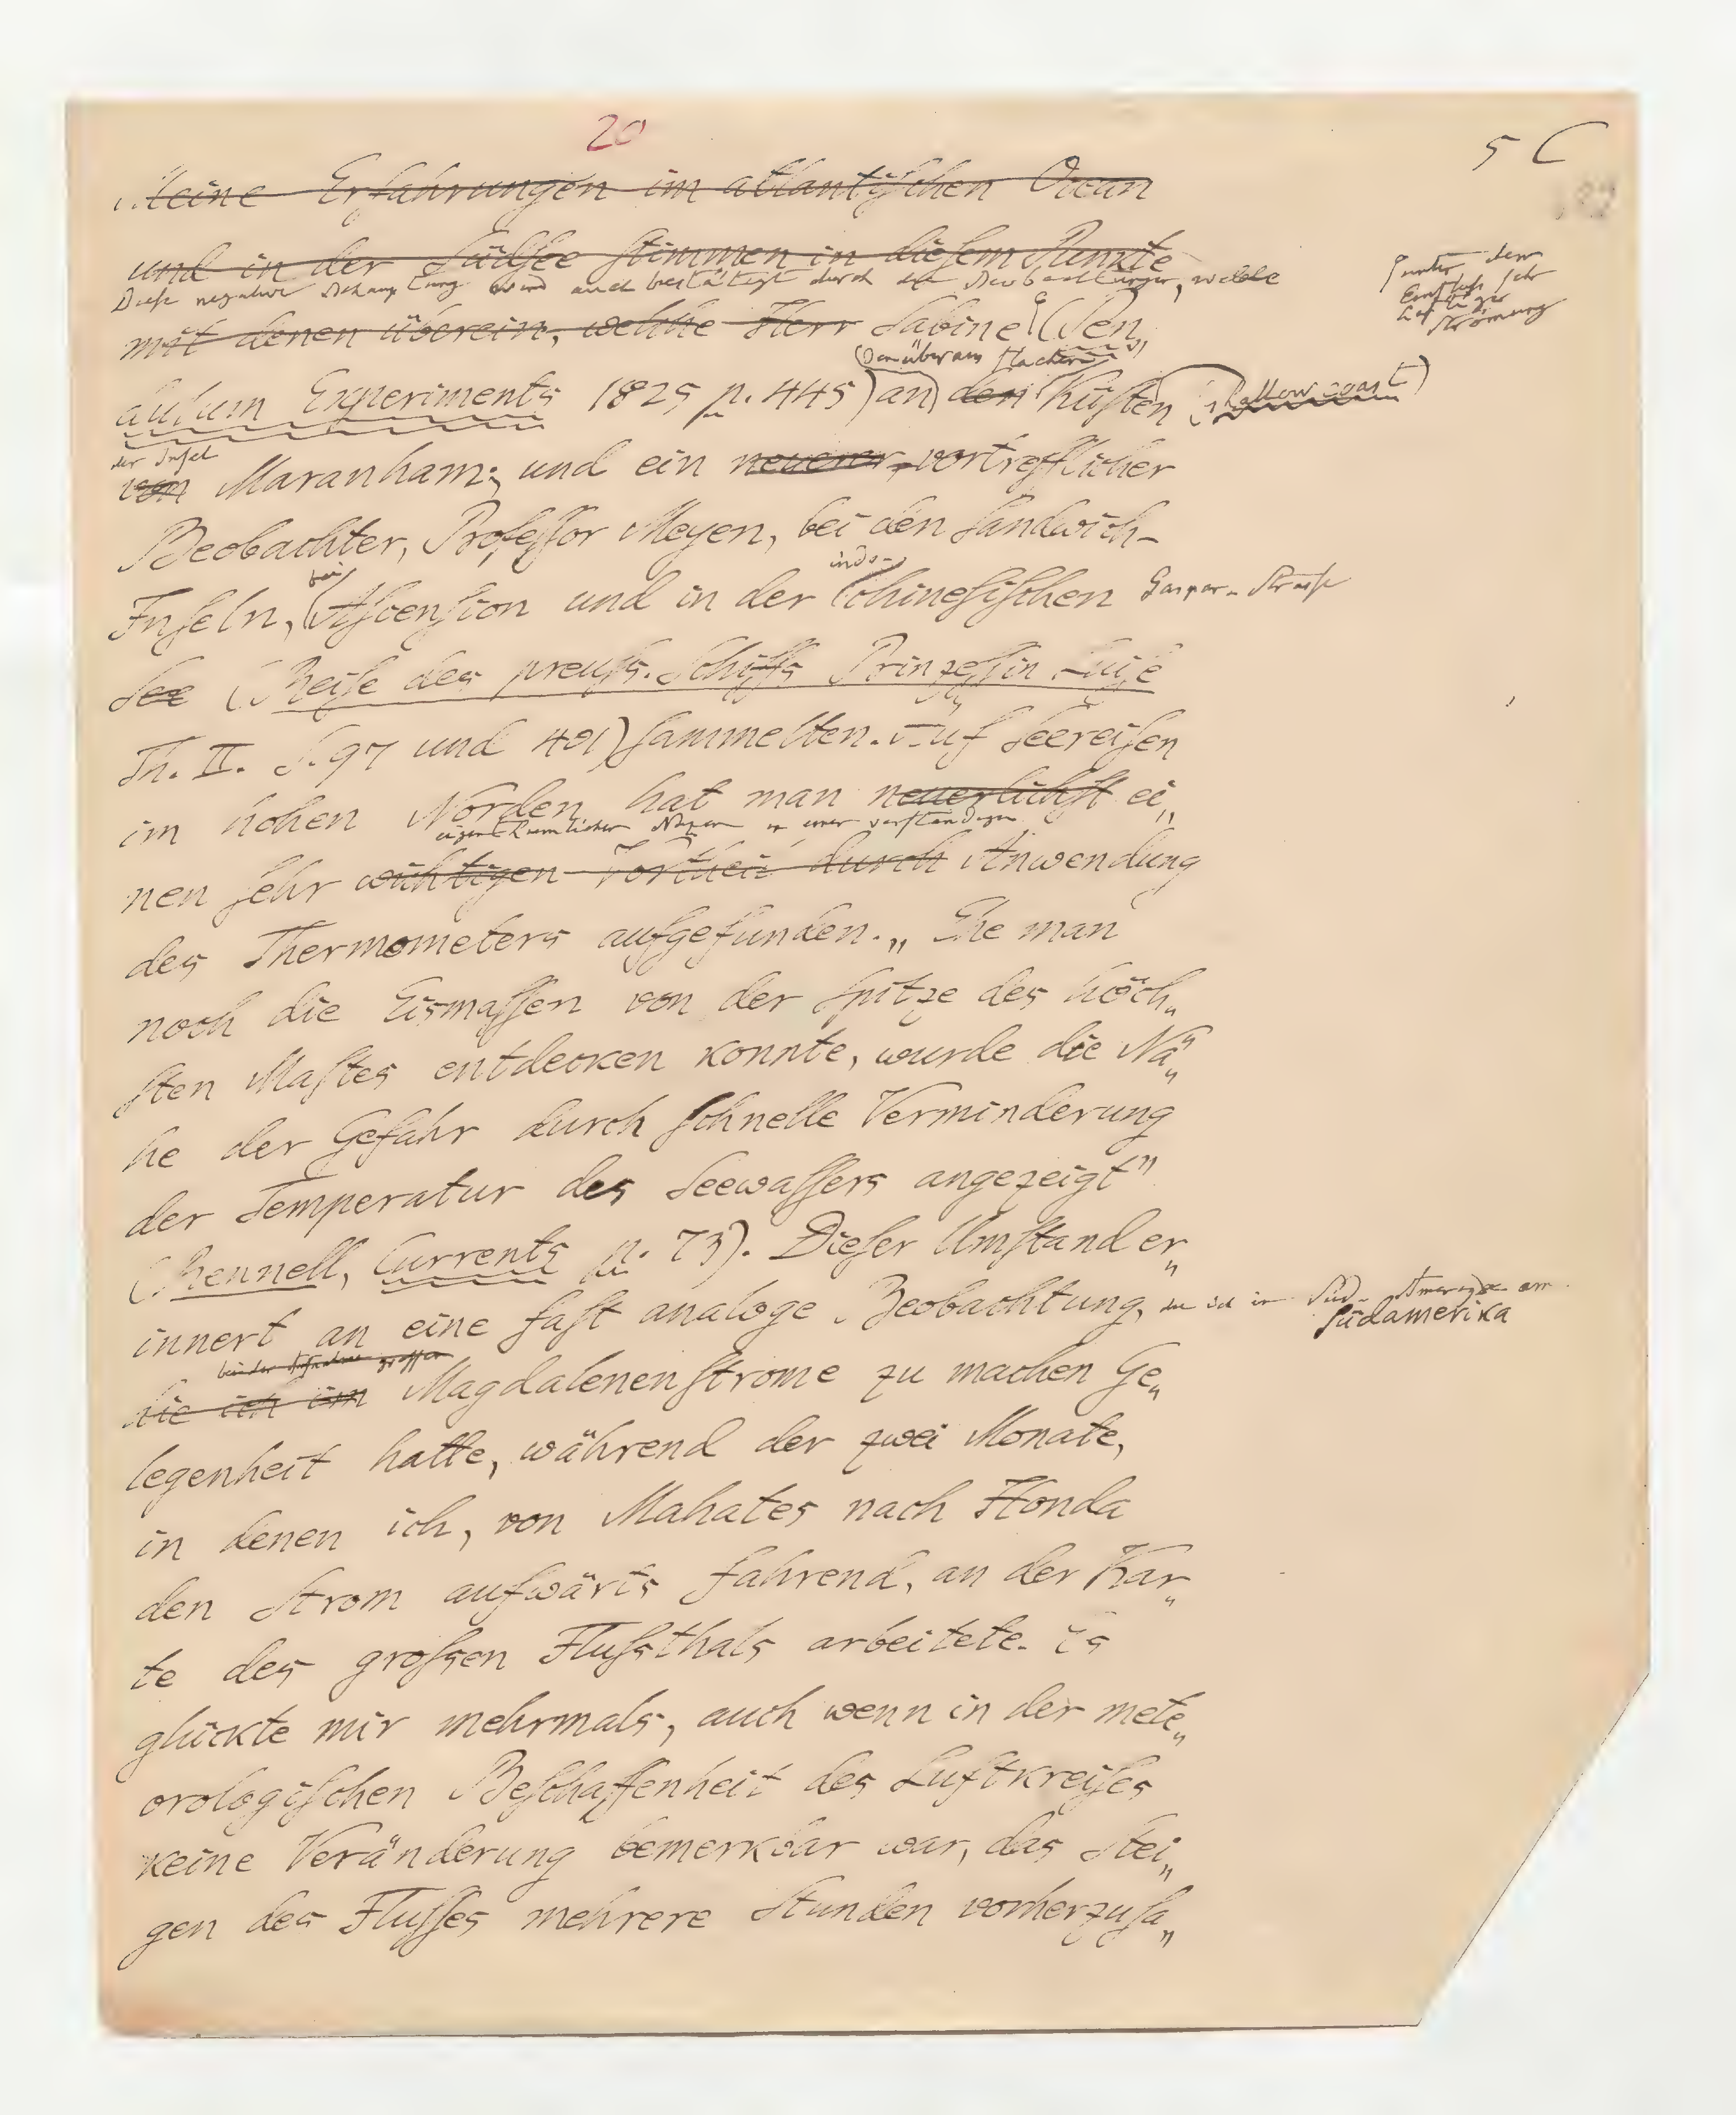 20
5 C
Meine Erfahrungen im atlantischen Ocean
und in der Südsee stimmen in diesem Punkte
Diese negative Behauptung wird auch bestätigt durch die Beobachtungen, welche
unter dem
Einfluss sehr
heftiger
Strömung
mit denen überein, welche Herr Sabine (Pen„
(den überaus flachen)
dulum Experiments 1825 p. 445) an den Küsten (shallow coast)
der Insel
von Maranham; und ein neuerer, vortrefflicher
Beobachter, Professor Meyen, bei den Sandwich-
bei indo-
Inseln, Ascension und in der chinesischen Gaspar-Strasse
See (Reise des preuss. Schiffs Prinzessin Luise
Th. II. S. 97 und 401) sammelten. Auf Seereisen
im hohen Norden hat man neuerlichst ei„
eigenthümlichen Nuzen in einer verständigen
nen sehr wichtigen Vortheil durch Anwendung
des Thermometers aufgefunden. „Ehe man
noch die Eismassen von der Spitze des höch„
sten Mastes entdecken konnte, wurde die Nä„
he der Gefahr durch schnelle Verminderung
der Temperatur des Seewassers angezeigt"
(Rennell, Currents p. 73). Dieser Umstand er„
innert an eine fast analoge Beobachtung, die ich in Süd-Amerika am
Südamerika
die ich im Magdalenenstrome zu machen Ge„
legenheit hatte, während der zwei Monate,
in denen ich, von Mahates nach Honda
den Strom aufwärts fahrend, an der Kar„
te des grossen Flussthals arbeitete. Es
glückte mir mehrmals, auch wenn in der mete„
orologischen Beschaffenheit des Luftkreises
keine Veränderung bemerkbar war, das Stei„
gen des Flusses mehrere Stunden vorherzusa„